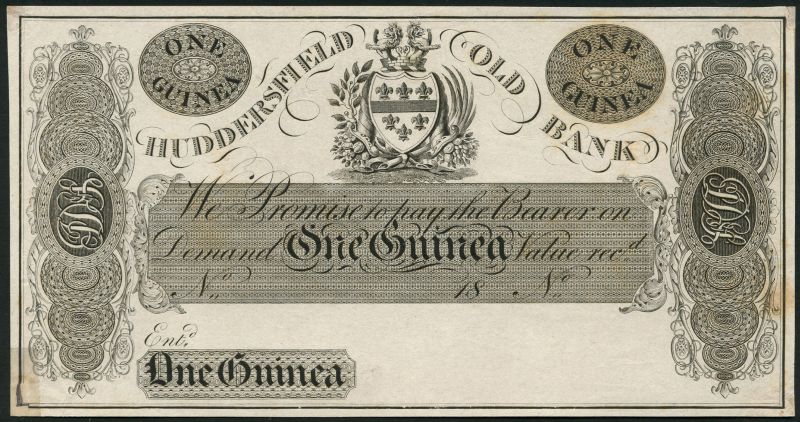 ONE GUINEA
HUDDERSFIELD OLD BANK
ONE GUINEA
We Promise to pay the Bearer on
Demand One Guinea Value recd
No. 18 No.
Entd
One Guinea